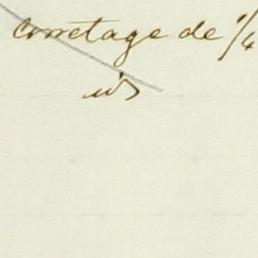 corretage de 1/4